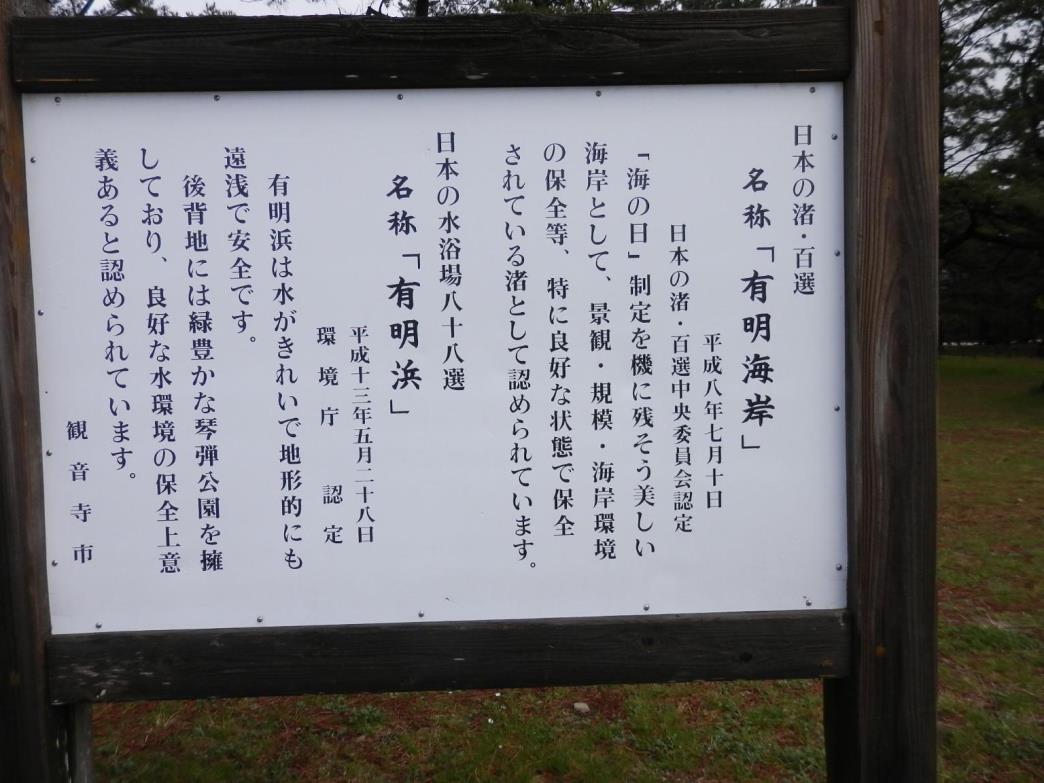 日本の渚・百選
名称「有明海岸」
平成八年七月十日
日本の渚・百選中央委員会認定
「海の日」制定を機に残そう美しい
海岸として、景観・規模・海岸環境
の保全等、特に良好な状態で保全
されている渚として認められています。
日本の水浴場八十八選
名称「有明浜」
平成十三年五月二十八日
環境庁 認定
有明浜は水がきれいで地形的にも
遠浅で安全です。
後背地には緑豊かな琴弾公園を擁
しており、良好な水環境の保全上意
義あると認められています。
観音寺市